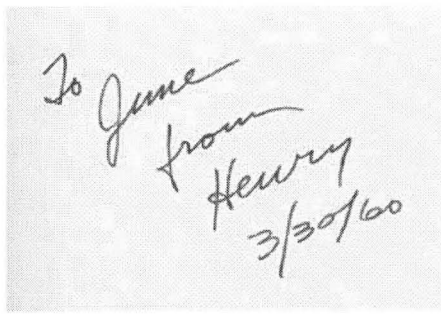 To
June
from
Henry
3/30/60